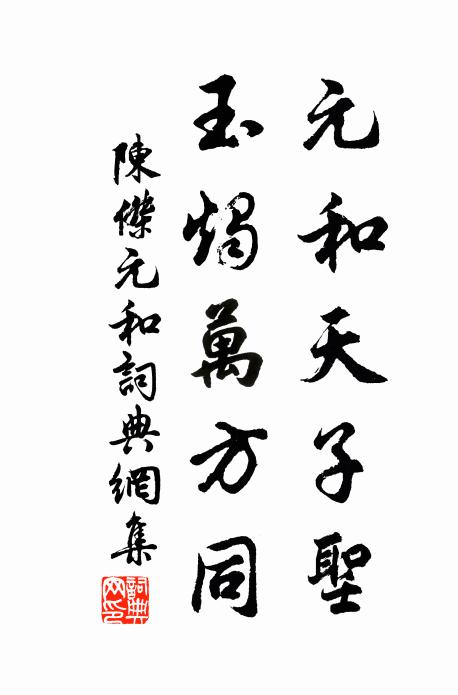 元和天子聖
玉燭萬方同
陳傑元和詞典網集
詞典網印